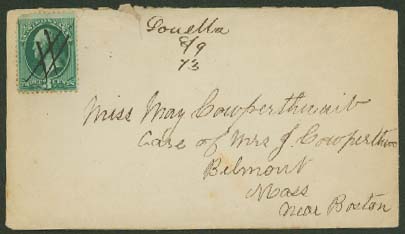 Louella
8/9
73
Miss May Cowperthwait
Care of Mrs J. Cowperthw
Belmont
Mass
Near Boston